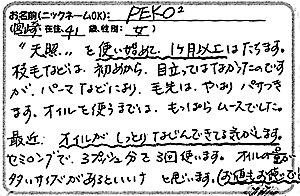 お名前(ニックネームOK): PEKO²
宮崎 在住 41 歳、性別: 女
"天照" を使い始めて、1ヶ月以上はたちます。
枝毛などは、初めから、目立ってはなかったのです
が、パーマなどにより、毛先は、やはりパサつき
ます。オイルを使うまでは、もっぱらムースでした。
最近、オイルがしっとりなじんできてる気がします。
セミロングで、3プッシュ分で3回使います。オイルの量が
タいサイズがあるといいけと思います。(お値も お徳って